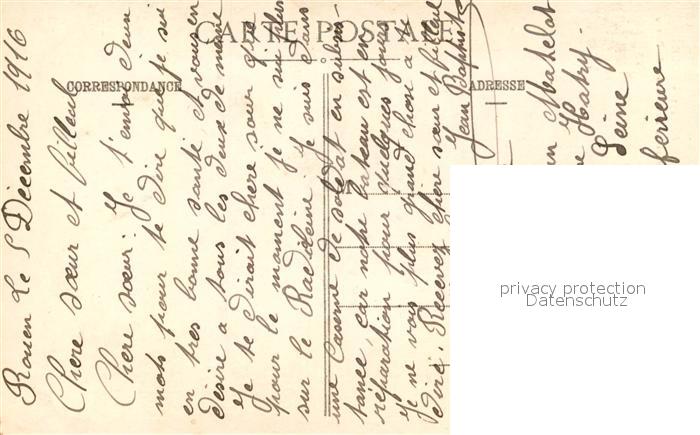 CARTE POSTALE
CORRESPONDANCE
ADRESSE
Rouen Le 5 Décembre 1916
Chere sœur et filleul
Chere sœur. Je t'envoi deux
mots pour te dire que je sui
en tres bonne santé et vous en
désire a tous les deux de meme
Je te dirait chere sœur que
pour le moment je ne sui plus
sur le Madeleine je suis dans
une Caserne de soldat en subsis
tance, car notre bateau est en
réparation pour quelques jours
Je ne vois plus grand chose a
dire. Recevez chere sœur et filleul
Jean Baptiste
Mahelot
Hatry
Seine
ferieure
privacy protection
Datenschutz